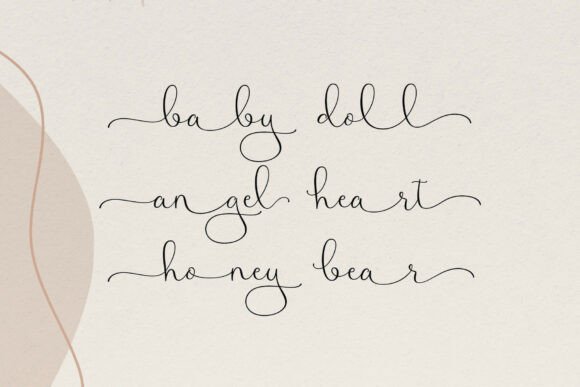 baby doll
angel heart
honey bear